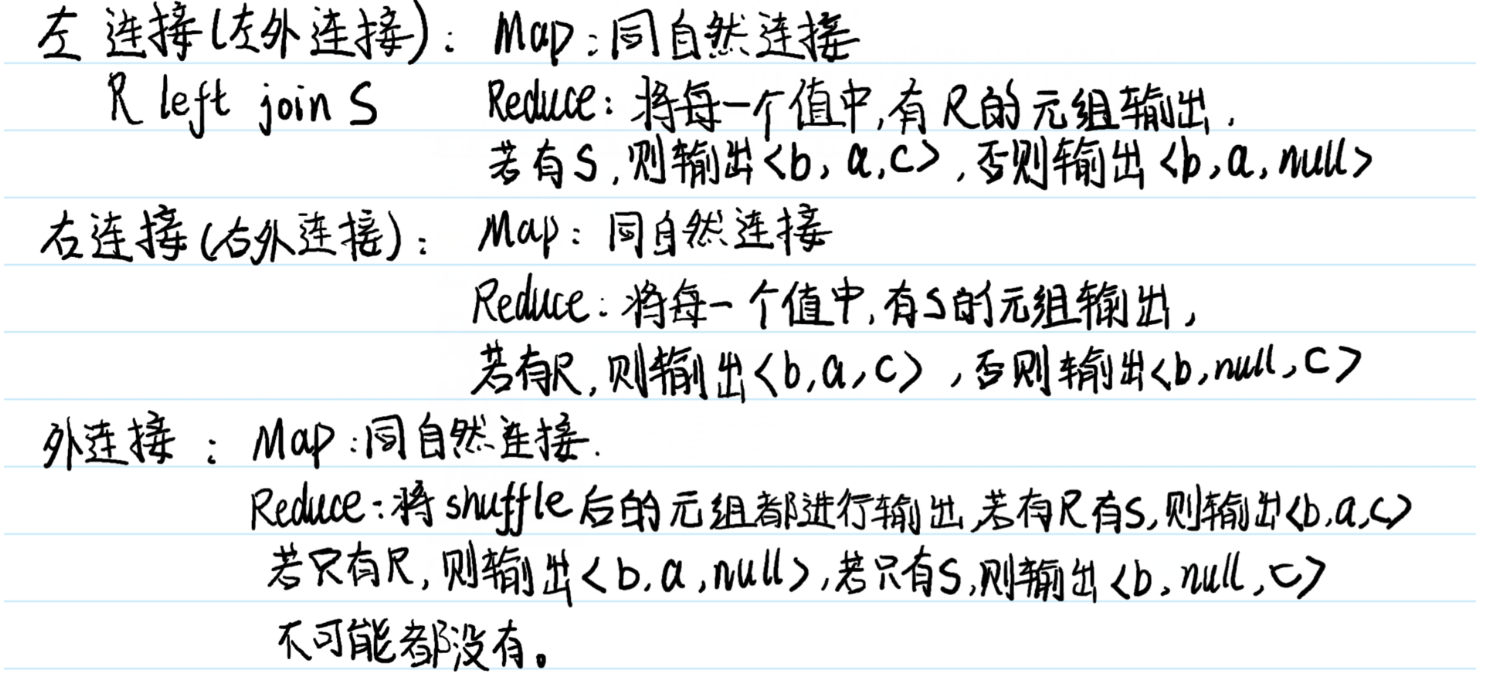 左连接(左外连接): Map:同自然连接
R left join S Reduce: 将每一个值中,有R的元组输出,
若有S,则输出<b, a,c>,否则输出<b,a,null>
右连接(右外连接): Map: 同自然连接
Reduce: 将每一个值中,有S的元组输出,
若有R,则输出<b,a,c>,否则输出<b,null,c>
外连接: Map:同自然连接.
Reduce:将shuffle后的元组都进行输出,若有R有S,则输出<b,a,c>
若只有R,则输出<b,a,null>,若只有S,则输出<b,null,c>
不可能都没有。